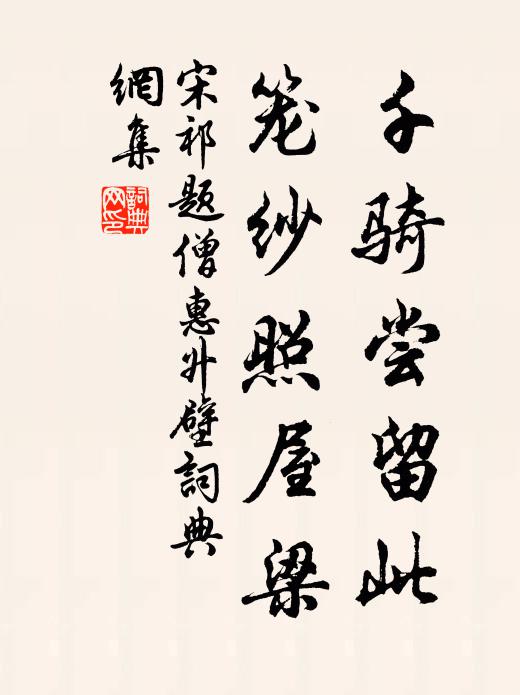 千骑尝留此
笼纱照屋梁
宋祁题僧惠升壁词典
網集
詞典
网印